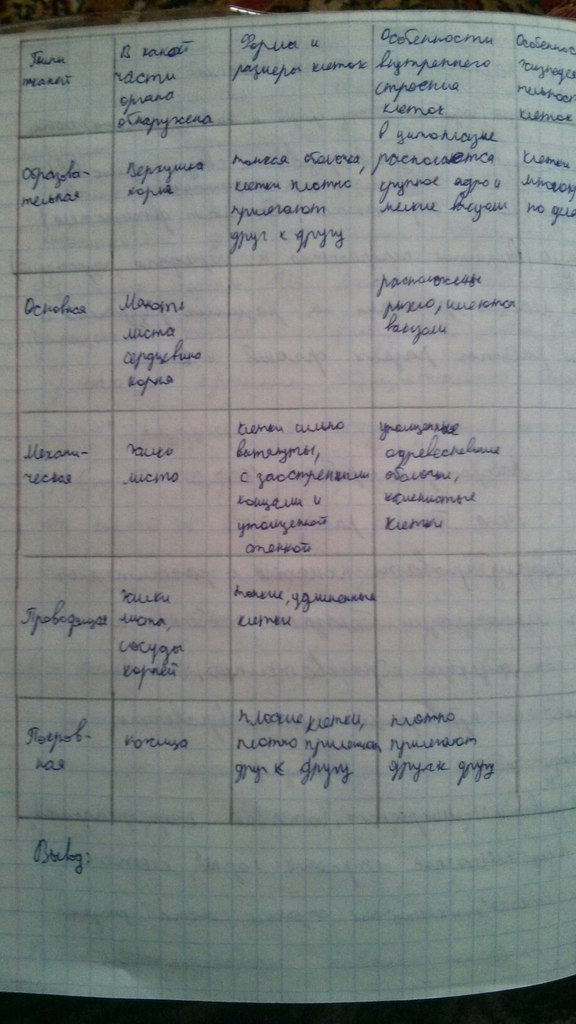 Типы
тканей
В какой
части
органа
обнаружена
Форма и
размеры клеток
Особенности
внутреннего
строения
клеток
Особеннос
жизнедея
тельност
клеток
Образова-
тельная
Верхушка
корня
тонкая оболочка,
клетки плотно
прилегают
друг к другу
в цитоплазме
располагается
крупное ядро и
мелкие вакуоли
клетки
по дел
Основная
Мякоть
листа
сердцевина
корня
расположены
рыхло, имеются
вакуоли
Механи-
ческая
жилка
листа
клетки сильно
вытянуты,
с заостренными
концами и
утолщенной
стенкой
утолщенные
одревесневшие
оболочки,
каменистые
клетки
Проводящая
жилки
листа,
сосуды
корней
тонкие, удлиненные
клетки
Покров-
ная
кожица
плоские клетки,
плотно
друг к другу
плотно
прилегают
друг к другу
Вывод: